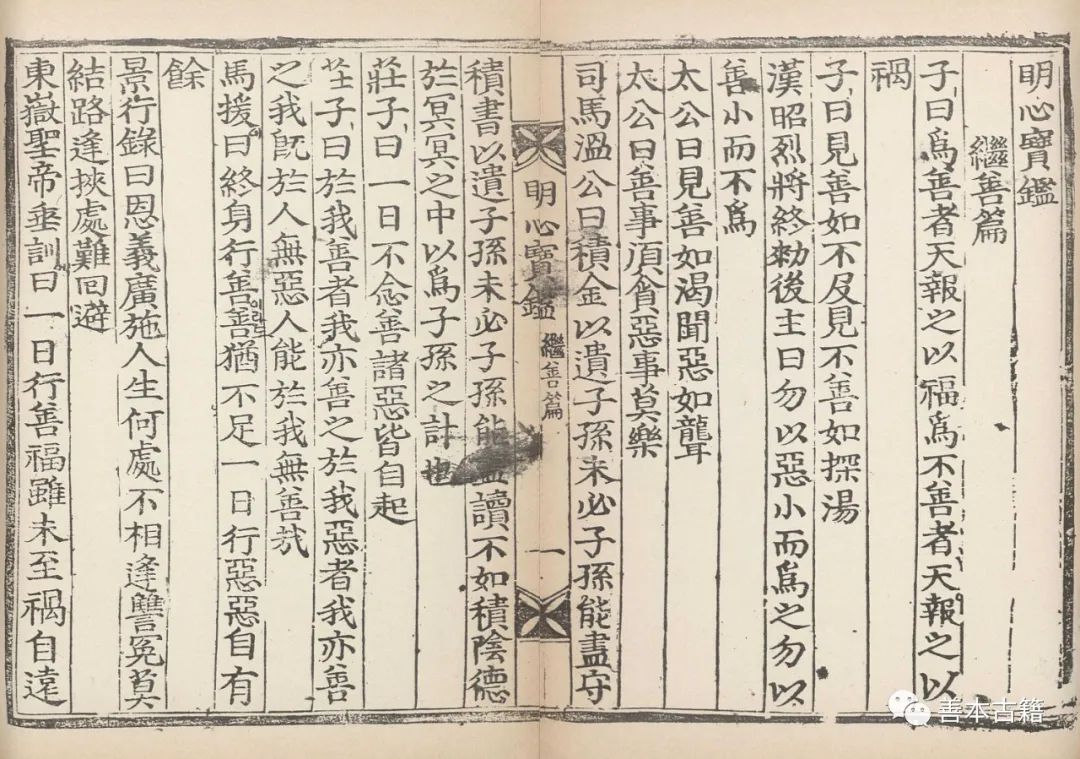 明心寶鑑
繼善篇
子曰爲善者天報之以福爲不善者天報之以
禍
子曰見善如不及見不善如探湯
漢昭烈將終勑後主曰勿以惡小而爲之勿以
善小而不爲
太公曰見善如渴聞惡如聾
太公曰善事須貪惡事莫樂
司馬溫公曰積金以遺子孫未必子孫能盡守
明心寶鑑 繼善篇 一
積書以遺子孫未必子孫能盡讀不如積陰德
於冥冥之中以爲子孫之計也
莊子曰一日不念善諸惡皆自起
莊子曰於我善者我亦善之於我惡者我亦善
之我旣於人無惡人能於我無善哉
馬援曰終身行善善猶不足一日行惡惡自有
餘
景行錄曰恩義廣施人生何處不相逢讐寃莫
結路逢挾處難回避
東嶽聖帝垂訓曰一日行善福雖未至禍自遠
善本古籍